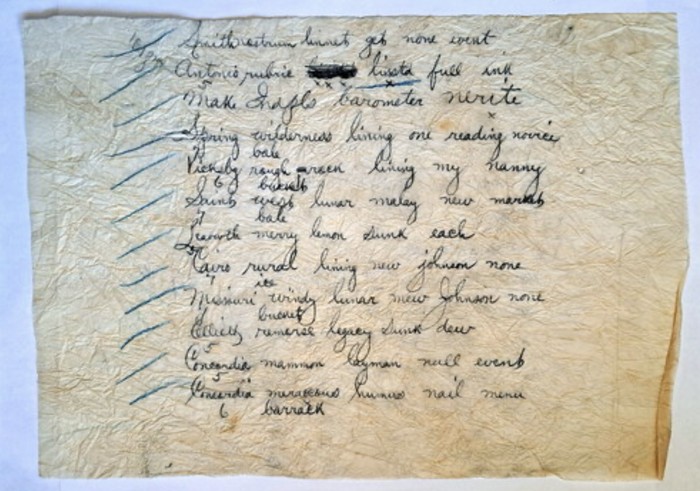 Smith nostrum linnet get none event
Antonio rubric lissta full ink
Make Indpls barometer nerite
Spring wilderness lining one reading novice
bale
Vicksbg rough rack lining my nanny
6 bucket
Saints west lunar malay new market
bale
Leavwth merry lemon sunk each
Cairo rural lining new johnson none
ice
Missouri windy lunar mew Johnson none
bucket
Elliott removse legacy sunk dew
5
Concordia mammon layman null event
5
Concordia meraccous humus nail menu
6 barrack